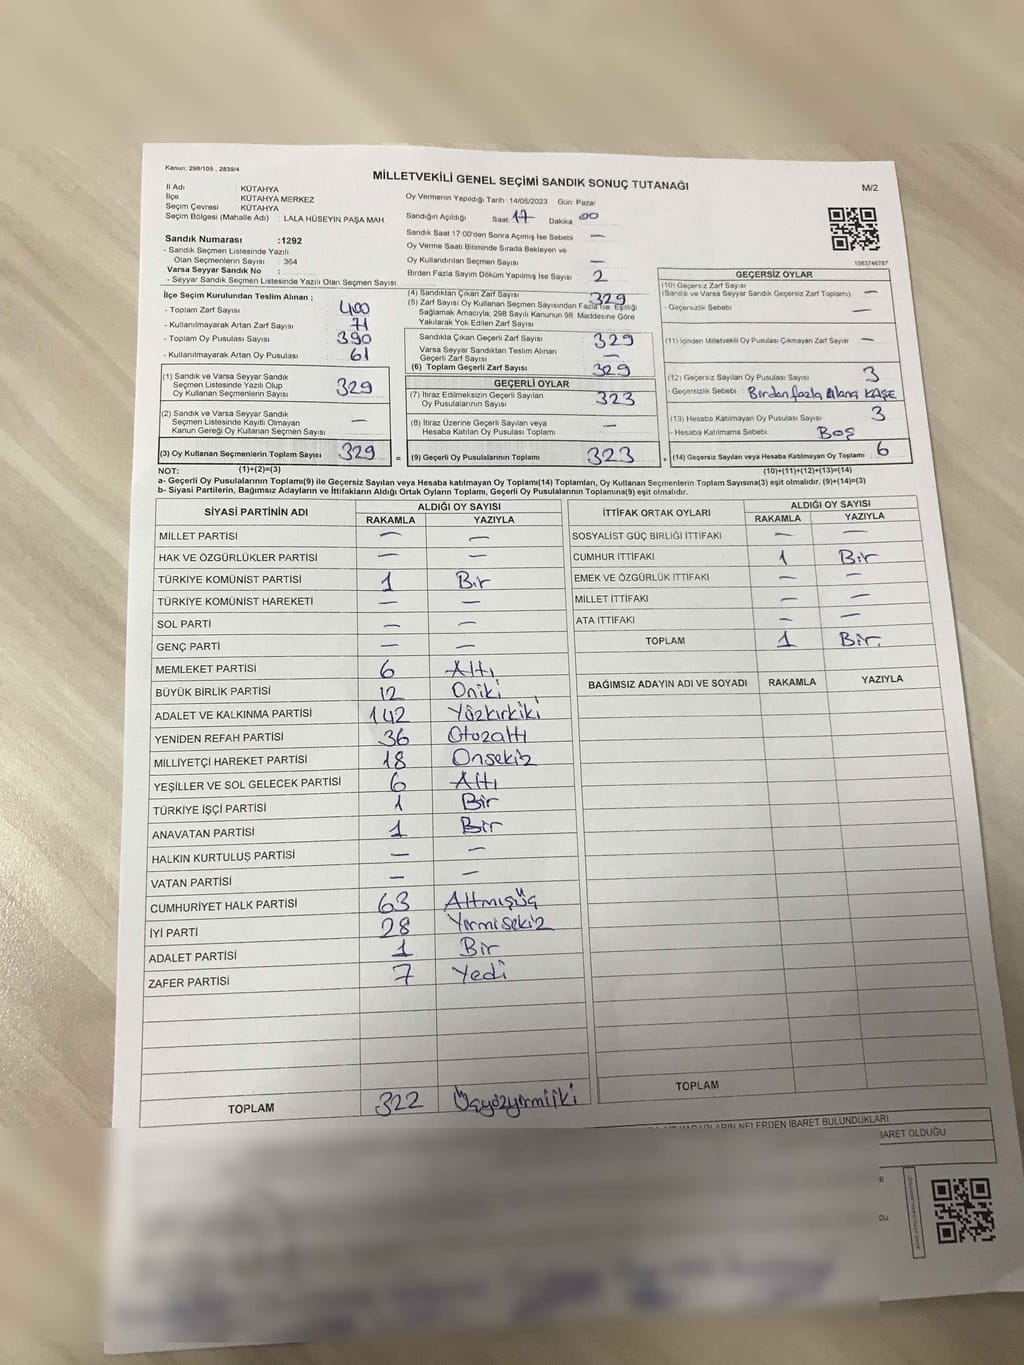 Kanun: 298/105 , 2839/4
MİLLETVEKİLİ GENEL SEÇİMİ SANDIK SONUÇ TUTANAĞI
M/2
İl Adı : KÜTAHYA
İlçe : KÜTAHYA MERKEZ
Seçim Çevresi : KÜTAHYA
Seçim Bölgesi (Mahalle Adı) : LALA HÜSEYİN PAŞA MAH.
Sandık Numarası :1292
- Sandık Seçmen Listesinde Yazılı
Olan Seçmenlerin Sayısı : 364
Varsa Seyyar Sandık No :
- Seyyar Sandık Seçmen Listesinde Yazılı Olan Seçmen Sayısı
Oy Vermenin Yapıldığı Tarih :14/05/2023 Gün: Pazar
Sandığın Açıldığı Saat 17 Dakika 00
Sandık Saat 17:00'den Sonra Açımış İse Sebebi —
Oy Verme Saati Bitiminde Sırada Bekleyen ve
Oy Kullandırılan Seçmen Sayısı —
Birden Fazla Sayım Döküm Yapılmış İse Sayısı 2
1083746797
İlçe Seçim Kurulundan Teslim Alınan ;
- Toplam Zarf Sayısı 400
- Kullanılmayarak Artan Zarf Sayısı 71
- Toplam Oy Pusulası Sayısı 390
- Kullanılmayarak Artan Oy Pusulası 61
(1) Sandık ve Varsa Seyyar Sandık
Seçmen Listesinde Yazılı Olup
Oy Kullanan Seçmenlerin Sayısı 329
(2) Sandık ve Varsa Seyyar Sandık
Seçmen Listesinde Kayıtlı Olmayan
Kanun Gereği Oy Kullanan Seçmen Sayısı —
(3) Oy Kullanan Seçmenlerin Toplam Sayısı 329
(4) Sandıktan Çıkan Zarf Sayısı 329
(5) Zarf Sayısı Oy Kullanan Seçmen Sayısından Fazla İse, Eşitliği
Sağlamak Amacıyla, 298 Sayılı Kanunun 98. Maddesine Göre
Yakılarak Yok Edilen Zarf Sayısı
Sandıkta Çıkan Geçerli Zarf Sayısı 329
Varsa Seyyar Sandıktan Teslim Alınan
Geçerli Zarf Sayısı —
(6) Toplam Geçerli Zarf Sayısı 329
GEÇERLİ OYLAR
(7) İtiraz Edilmeksizin Geçerli Sayılan
Oy Pusulalarının Sayısı 323
(8) İtiraz Üzerine Geçerli Sayılan veya
Hesaba Katılan Oy Pusulası Toplamı —
= (9) Geçerli Oy Pusulalarının Toplamı 323
GEÇERSİZ OYLAR
(10) Geçersiz Zarf Sayısı
(Sandık ve Varsa Seyyar Sandık Geçersiz Zarf Toplamı) —
- Geçersizlik Sebebi —
(11) İçinden Milletvekili Oy Pusulası Çıkmayan Zarf Sayısı —
(12) Geçersiz Sayılan Oy Pusulası Sayısı 3
- Geçersizlik Sebebi Birden fazla Alana KAŞE
(13) Hesaba Katılmayan Oy Pusulası Sayısı 3
- Hesaba Katılmama Sebebi Boş
+ (14) Geçersiz Sayılan veya Hesaba Katılmayan Oy Toplamı 6
NOT: (1)+(2)=(3) (10)+(11)+(12)+(13)=(14)
a- Geçerli Oy Pusulalarının Toplamı(9) ile Geçersiz Sayılan veya Hesaba katılmayan Oy Toplamı(14) Toplamları, Oy Kullanan Seçmenlerin Toplam Sayısına(3) eşit olmalıdır. (9)+(14)=(3)
b- Siyasi Partilerin, Bağımsız Adayların ve İttifakların Aldığı Ortak Oyların Toplamı, Geçerli Oy Pusulalarının Toplamına(9) eşit olmalıdır.
SİYASİ PARTİNİN ADI ALDIĞI OY SAYISI
RAKAMLA YAZIYLA
MİLLET PARTİSİ — —
HAK VE ÖZGÜRLÜKLER PARTİSİ — —
TÜRKİYE KOMÜNİST PARTİSİ 1 Bir
TÜRKİYE KOMÜNİST HAREKETİ — —
SOL PARTİ — —
GENÇ PARTİ — —
MEMLEKET PARTİSİ 6 Altı
BÜYÜK BİRLİK PARTİSİ 12 Oniki
ADALET VE KALKINMA PARTİSİ 142 Yüzkırkiki
YENİDEN REFAH PARTİSİ 36 Otuzaltı
MİLLİYETÇİ HAREKET PARTİSİ 18 Onsekiz
YEŞİLLER VE SOL GELECEK PARTİSİ 6 Altı
TÜRKİYE İŞÇİ PARTİSİ 1 Bir
ANAVATAN PARTİSİ 1 Bir
HALKIN KURTULUŞ PARTİSİ — —
VATAN PARTİSİ — —
CUMHURİYET HALK PARTİSİ 63 Altmışüç
İYİ PARTİ 28 Yirmisekiz
ADALET PARTİSİ 1 Bir
ZAFER PARTİSİ 7 Yedi
TOPLAM 322 Üçyüzyirmiiki
İTTİFAK ORTAK OYLARI ALDIĞI OY SAYISI
RAKAMLA YAZIYLA
SOSYALİST GÜÇ BİRLİĞİ İTTİFAKI — —
CUMHUR İTTİFAKI 1 Bir
EMEK VE ÖZGÜRLÜK İTTİFAKI — —
MİLLET İTTİFAKI — —
ATA İTTİFAKI — —
TOPLAM 1 Bir.
BAĞIMSIZ ADAYIN ADI VE SOYADI RAKAMLA YAZIYLA
TOPLAM
NELERDEN İBARET BULUNDUKLARI
BARET OLDUĞU